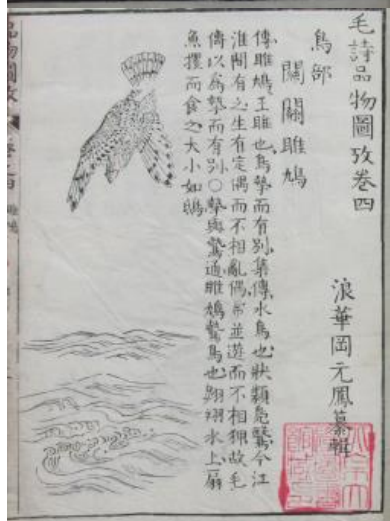 毛詩品物圖攷卷四
浪華岡元鳳纂輯
鳥部
關關雎鳩
傳雎鳩王雎也鳥摯而有別集傳水鳥也狀類鳧鷖今江
淮間有之生有定偶而不相亂偶常並遊而不相狎故毛
傳以爲摯而有別〇摯與鷙通雎鳩鷙鳥也翱翔水上扇
魚攫而食之大小如鴟
品物圖攷